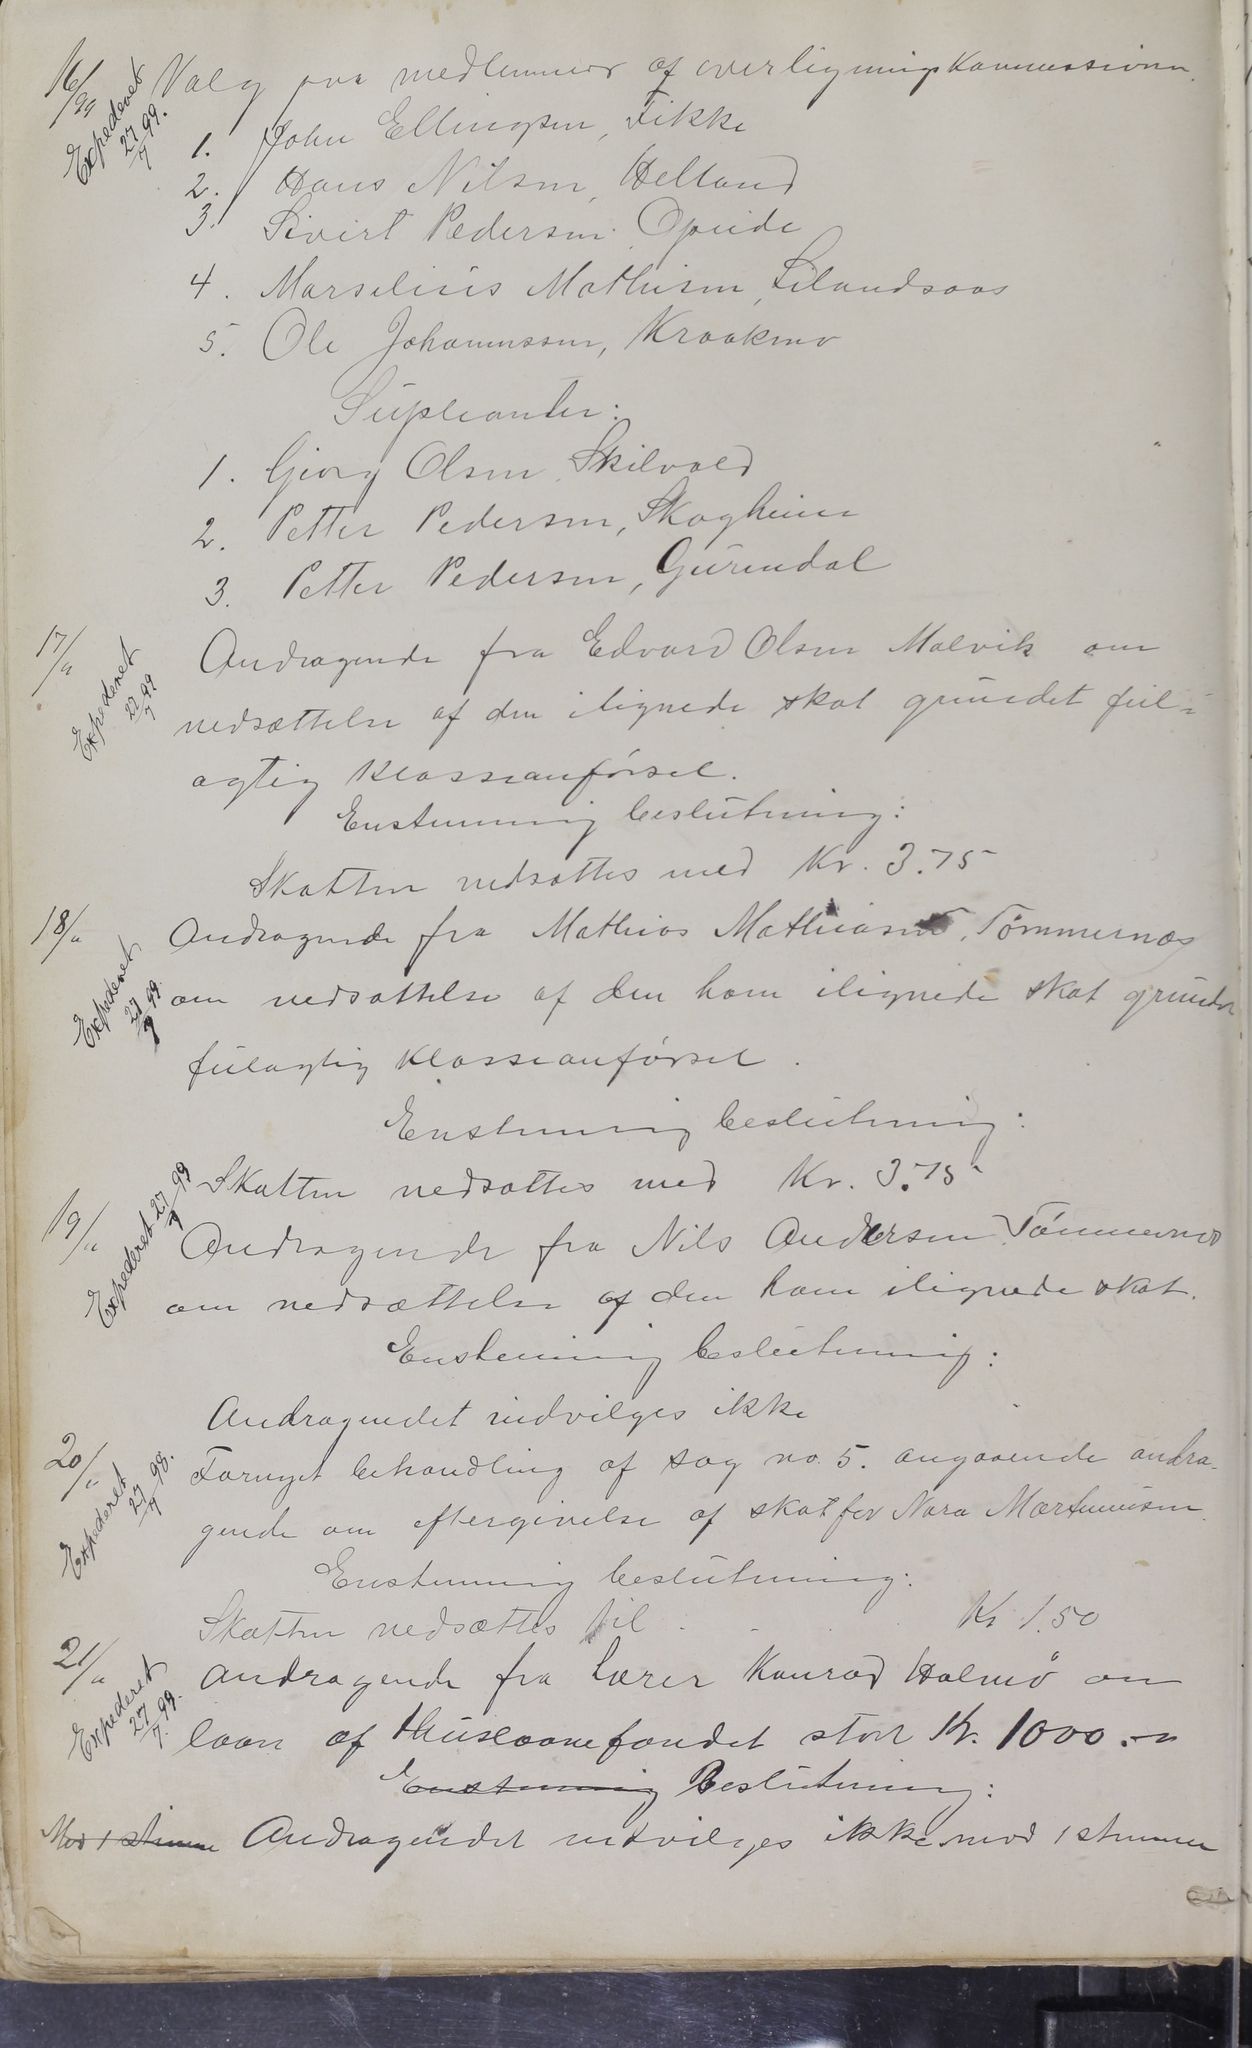 16/99 Valg paa medlemmer af overligningskommissionen.
Expederet 27/7 99.
1. John Ellingsen, Fikke
2. Hans Nilsen, Helland
3. Sivert Pedersen Opeide
4. Marselius Mathisen, Lilandsaas
5. Ole Johannessen, Kraakmo
Supleanter:
1. Georg Olsen, Skilvold
2. Petter Pedersen, Skogheim
3. Petter Pedersen, Gurendal
17/" Andragende fra Edvard Olsen Malvik om
Expederet 27/7 99
nedsættelse af den ilignede skat grundet feil-
agtig klasseanførsel.
Enstemmig beslutning:
Skatten nedsættes med Kr. 3.75
18/" Andragende fra Mathias Mathiasen, Tømmernæs
Expederet 27/7 99.
om nedsættelse af den ham ilignede skat grundet
feilagtig klasseanførsel.
Enstemmig beslutning:
Skatten nedsættes med Kr. 3.75
19/" Andragende fra Nils Andersen Tømmernæs
Expederet 27/7 99
om nedsættelse af den ham ilignede skat.
Enstemmig beslutning:
Andragendet indvilges ikke
20/" Fornyet behandling af sag no. 5. angaaende andra-
Expederet 27/7 98.
gende om eftergivelse af skat for Nora Martinusen.
Enstemmig beslutning:
Skatten nedsættes til . . . Kr 1.50
21/" Andragende fra Lærer Konrad Halmø om
Expederet 27/7. 99.
laan af Huslaanefondet stort Kr. 1000.-
Enstemmig Beslutning:
Mod 1 stemme Andragendet indvilges ikke mod 1 stemme